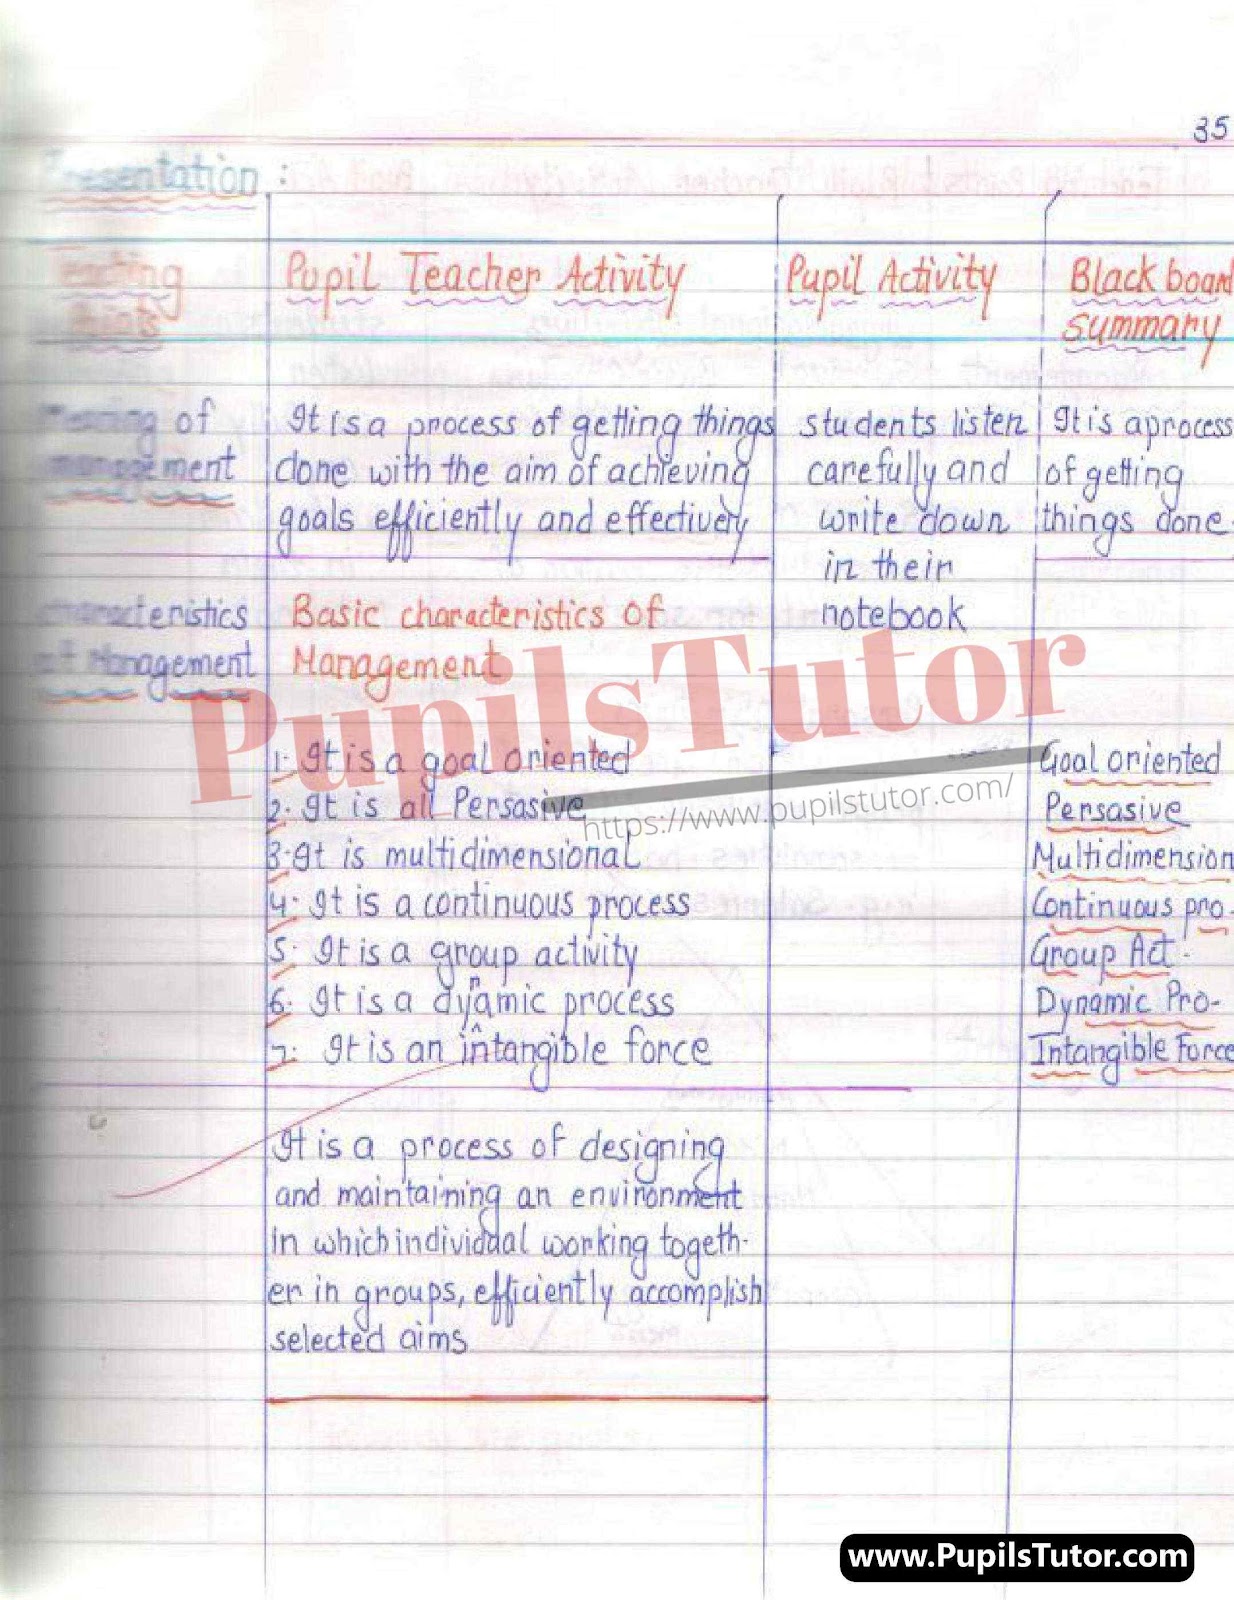 35
Presentation :
Teaching Points
Pupil Teacher Activity
Pupil Activity
Black board
summary
Meaning of
management
It is a process of getting things
done with the aim of achieving
goals efficiently and effectively
students listen
carefully and
write down
in their
notebook
It is a process
of getting
things done.
characteristics
of Management
Basic characteristics of
Management
1. It is a goal oriented
2. It is all Persasive
3. It is multidimensional
4. It is a continuous process
5. It is a group activity
6. It is a dynamic process
7. It is an intangible force
Goal oriented
Persasive
Multidimension
Continuous pro.
Group Act.
Dynamic Pro-
Intangible Force
It is a process of designing
and maintaining an environment
in which individual working togeth-
er in groups, efficiently accomplish
selected aims
PupilsTutor
https://www.pupilstutor.com/
www.PupilsTutor.com